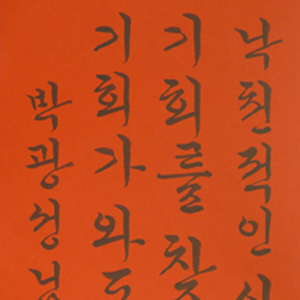 낙천적인
기회를 찾
기회가 와
박광성님